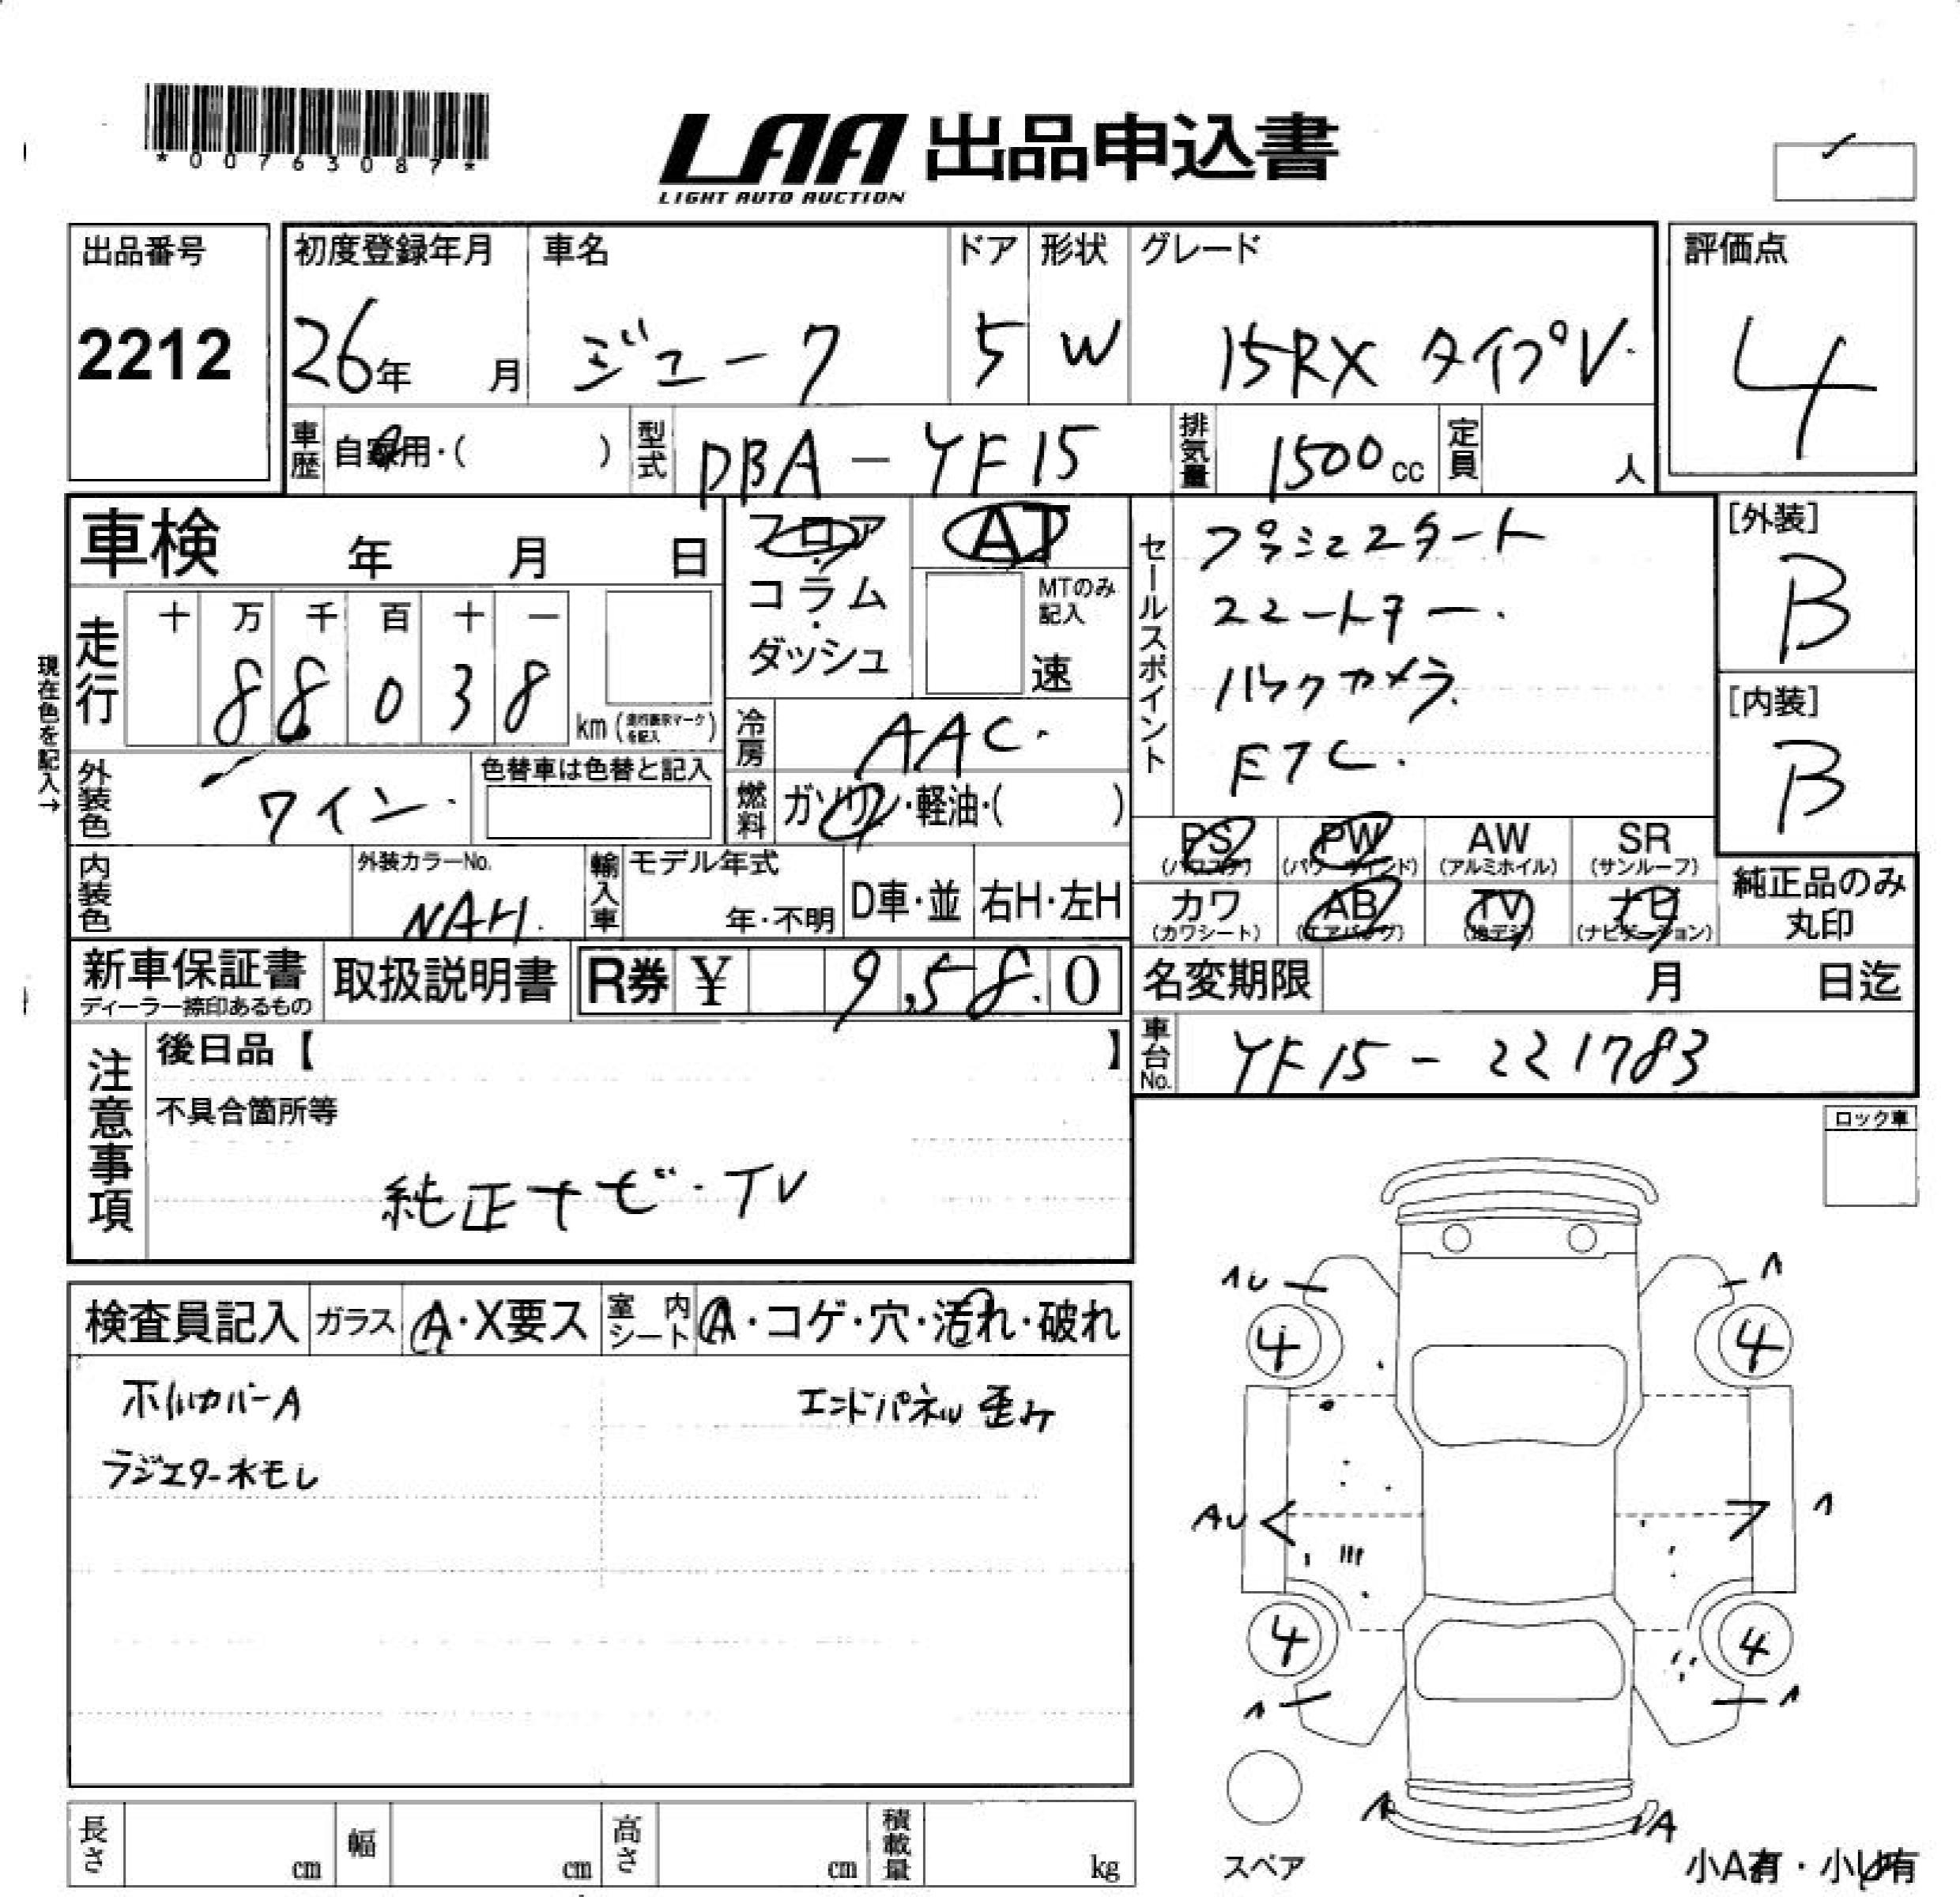 *00763087*
LAA 出品申込書
LIGHT AUTO AUCTION
出品番号
2212
初度登録年月
26年 月
車名
ジューク
ドア
5
形状
W
グレード
15RX タイプV
評価点
4
車歴 自家用・( )
型式 DBA-YF15
排気量 1500cc
定員 人
車検 年 月 日
フロア・コラム・ダッシュ
AT
MTのみ記入
速
走行 十 万 千 百 十 一
8 8 0 3 8
km (走行表示マークを記入)
現在色を記入→
冷房 AAC.
燃料 ガソリン・軽油・( )
外装色 ワイン
色替車は色替と記入
内装色
外装カラーNo.
NAH.
輸入車 モデル年式
年・不明
D車・並
右H・左H
セールスポイント
プッシュスタート
スマートキー.
バックカメラ.
ETC.
[外装]
B
[内装]
B
PS
(パワステ)
PW
(パワーウインド)
AW
(アルミホイル)
SR
(サンルーフ)
カワ
(カワシート)
AB
(エアバッグ)
TV
(地デジ)
ナビ
(ナビゲーション)
純正品のみ
丸印
新車保証書
ディーラー捺印あるもの
取扱説明書
R券 ¥ 9,58.0
名変期限 月 日迄
車台No. YF15-221783
注意事項
後日品【 】
不具合箇所等
純正ナビ・TV
ロック車
検査員記入
ガラス A・X要ス
室内シート A・コゲ・穴・汚れ・破れ
ホイルカバーA
ラジエター水モレ
エンドパネル歪み
AU
A
4
4
AU
A
4
4
A
A
A
A
スペア
小A有・小U有
長さ cm
幅 cm
高さ cm
積載量 kg